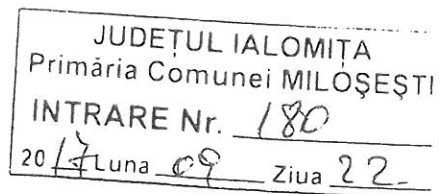 JUDEȚUL IALOMIȚA
Primăria Comunei MILOȘEȘTI
INTRARE Nr. 180
2017 Luna 09 Ziua 22